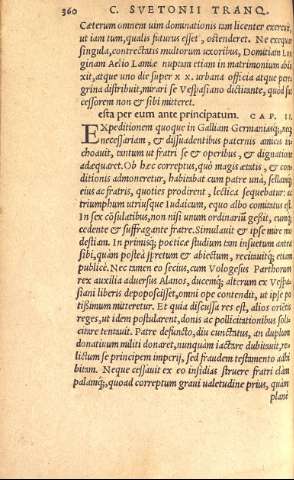 360 C. SVETONII TRANQ.
Cæterum omnem uim dominationis tam licenter exercuit,
ut iam tum, qualis futurus esset, ostenderet. Ne exequar
singula, contrectatis multorum uxoribus, Domitiam Lon
ginam Aelio Lamiæ nuptam etiam in matrimonium abdu
xit, atque uno die super x x. urbana officia atque pere
grina distribuit, mirari se Vespasiano dictante, quod suc
cessorem non & sibi mitteret.
esta per eum ante principatum. CAP. II.
EXpeditionem quoque in Galliam Germaniasq́; neq;
necessariam, & dissuadentibus paternis amicis in
choauit, tantum ut fratri se & operibus, & dignatione
adæquaret. Ob hæc correptus, quò magis ætatis, & con
ditionis admoneretur, habitabat cum patre unà, sellamq́;
eius ac fratris, quoties prodirent, lectica sequebatur: ac
triumphum utriusque Iudaicum, equo albo comitatus est.
In sex cōsulatibus, non nisi unum ordinariū gessit, eumq́;
cedente & suffragante fratre. Simulauit & ipse mire mo
destiam. In primisq́; poeticæ studium tam insuetum antea
sibi, quàm postea spretum & abiectum, recitauitq́; etiam
publicè. Nec tamen eo secius, cum Vologesus Parthorum
rex auxilia aduersus Alanos, ducemq́; alterum ex Vespa
siani liberis depoposcisset, omni ope contendit, ut ipse po
tissimum mitteretur. Et quia discussa res est, alios orientis
reges, ut idem postularent, donis ac pollicitationibus soli
citare tentauit. Patre defuncto, diu cunctatus, an duplum
donatiuum militi donaret, nunquàm iactare dubitauit, re
lictum se principem imperij, sed fraudem testamento adhi
bitam. Neque cessauit ex eo insidias struere fratri clàm
palamq́;, quoad correptum graui ualetudine prius, quàm
planè